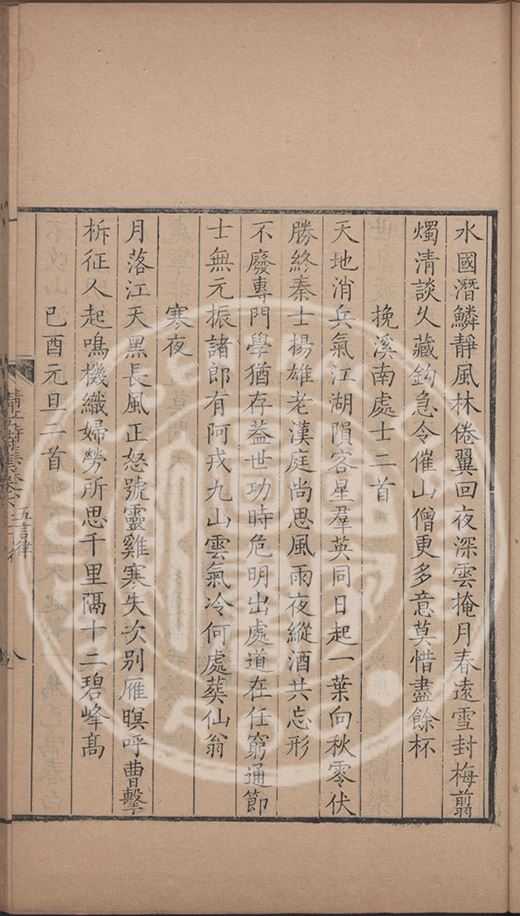 水國潛鱗靜風林倦翼回夜深雲掩月春遠雪封梅翦
燭清談久藏鉤急令催山僧更多意莫惜盡餘杯
挽溪南處士二首
天地消兵氣江湖隕客星羣英同日起一葉向秋零伏
勝終秦士揚雄老漢庭尚思風雨夜縱酒共忘形
不廢專門學猶存葢世功時危明出處道在任窮通節
士無元振諸郎有阿戎九山雲氣冷何處葬仙翁
寒夜
月落江天黑長風正怒號靈雞寒失次別雁暝呼曹擊
柝征人起鳴機織婦勞所思千里隔十二碧峰高
己酉元旦二首
五言律
八